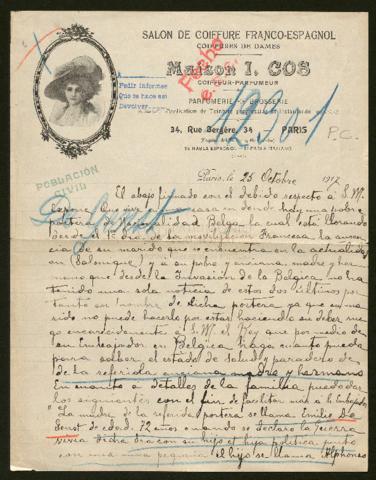 SALON DE COIFFURE FRANCO-ESPAGNOL
COIFFURES DE DAMES
Maison I. COS
COIFFEUR-PARFUMEUR
PARFUMERIE BROSSERIE
Application de Teinture
34, Rue Bergère, 34 PARIS
SE HABLA ESPAÑOL SI PARLA ITALIANO
Pedir informes
Que se hace así
Devolver
Fecha
12301
P.C.
POBLACIÓN
CIVIL
De Genst
Paris, le 25 Octobre 1917
El abajo firmado con el debido respecto á S. M.
expone: Que en casa en donde hay una pobre
portera de nacionalidad Belga la cual está llorando
desde el 1er dia de la movilización Francesa la ausen
cia de su marido que se encuentra en la actualidad
en (Salonique) y á su pobre y anciana madre y her
mano que desde la Invasión de la Belgica no ha
tenido una sola noticia de estos dos últimos por
tanto en nombre de dicha portera ya que su ma
rido no puede hacerlo por estar haciendo su deber rue
go encarecidamente á S. M. el Rey que por medio de
su Embajador en Belgica haga cuanto pueda
para saber el estado de salud y paradero de
de la referida anciana madre y hermano
En cuanto á detalles de la familia puedo dar
los siguientes con el fin de facilitar mas á la Embajada
"La madre de la referida portera se llama Emilie De
Genst de edad 72 años cuando se declaró la guerra
vivia dicha Sra con su hijo et hija politica junto
con una una pequeña el hijo se llama Alphonse